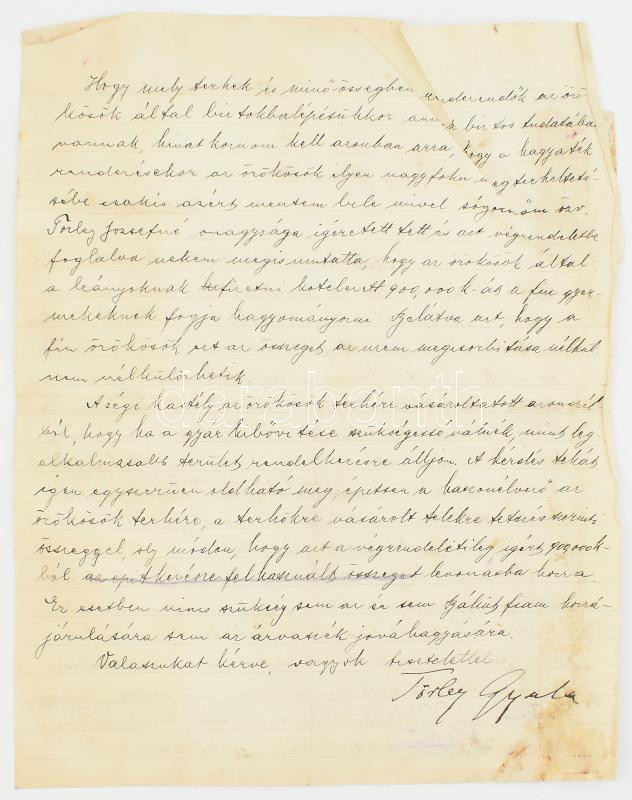 Hogy mely terhek és minő összegben rendezendők az örö-
kösök által birtokbalépésükkor annak biztos tudatában
vannak, hivatkoznom kell azonban arra, hogy a hagyaték
rendezésekor az örökösök ilyen nagyfoku megterhelteté-
sébe csakis azért mentem bele mivel sógornőm özv.
Törley Józsefné őnagysága igéretett tett és azt végrendeletbe
foglalva nekem megis mutatta, hogy az örökösök által
a leányoknak kifizetni kötelezett 900,000 k-át a fiu gyer-
mekeknek fogja hagyományozni belátva azt, hogy a
fiu örökösök ezt az összeget az üzem megcsorbitása nélkül
nem nélkülözhetik.
A régi kastély az örökösök terhére vásároltatott azon célból
ból, hogy ha a gyár kibővitése szükségessé válnék, mint leg-
alkalmasabb terület rendelkezésre álljon. A kérdés tehát
igen egyszerüen oldható meg: épitsen a haszonélvező az
örökösök terhére, a terhükre vásárolt telekre tetszés szerinti
összeggel, oly módon, hogy azt a végrendeletileg igért 900,000 k-
ból felhasznált összeget levonásba hozza.
Ez esetben nincs szükség sem az én sem Bálint fiam hozzá-
járulására sem az árvaszék jóváhagyására.
Válaszukat kérve, vagyok tisztelettel
Törley Gyula
darabanth